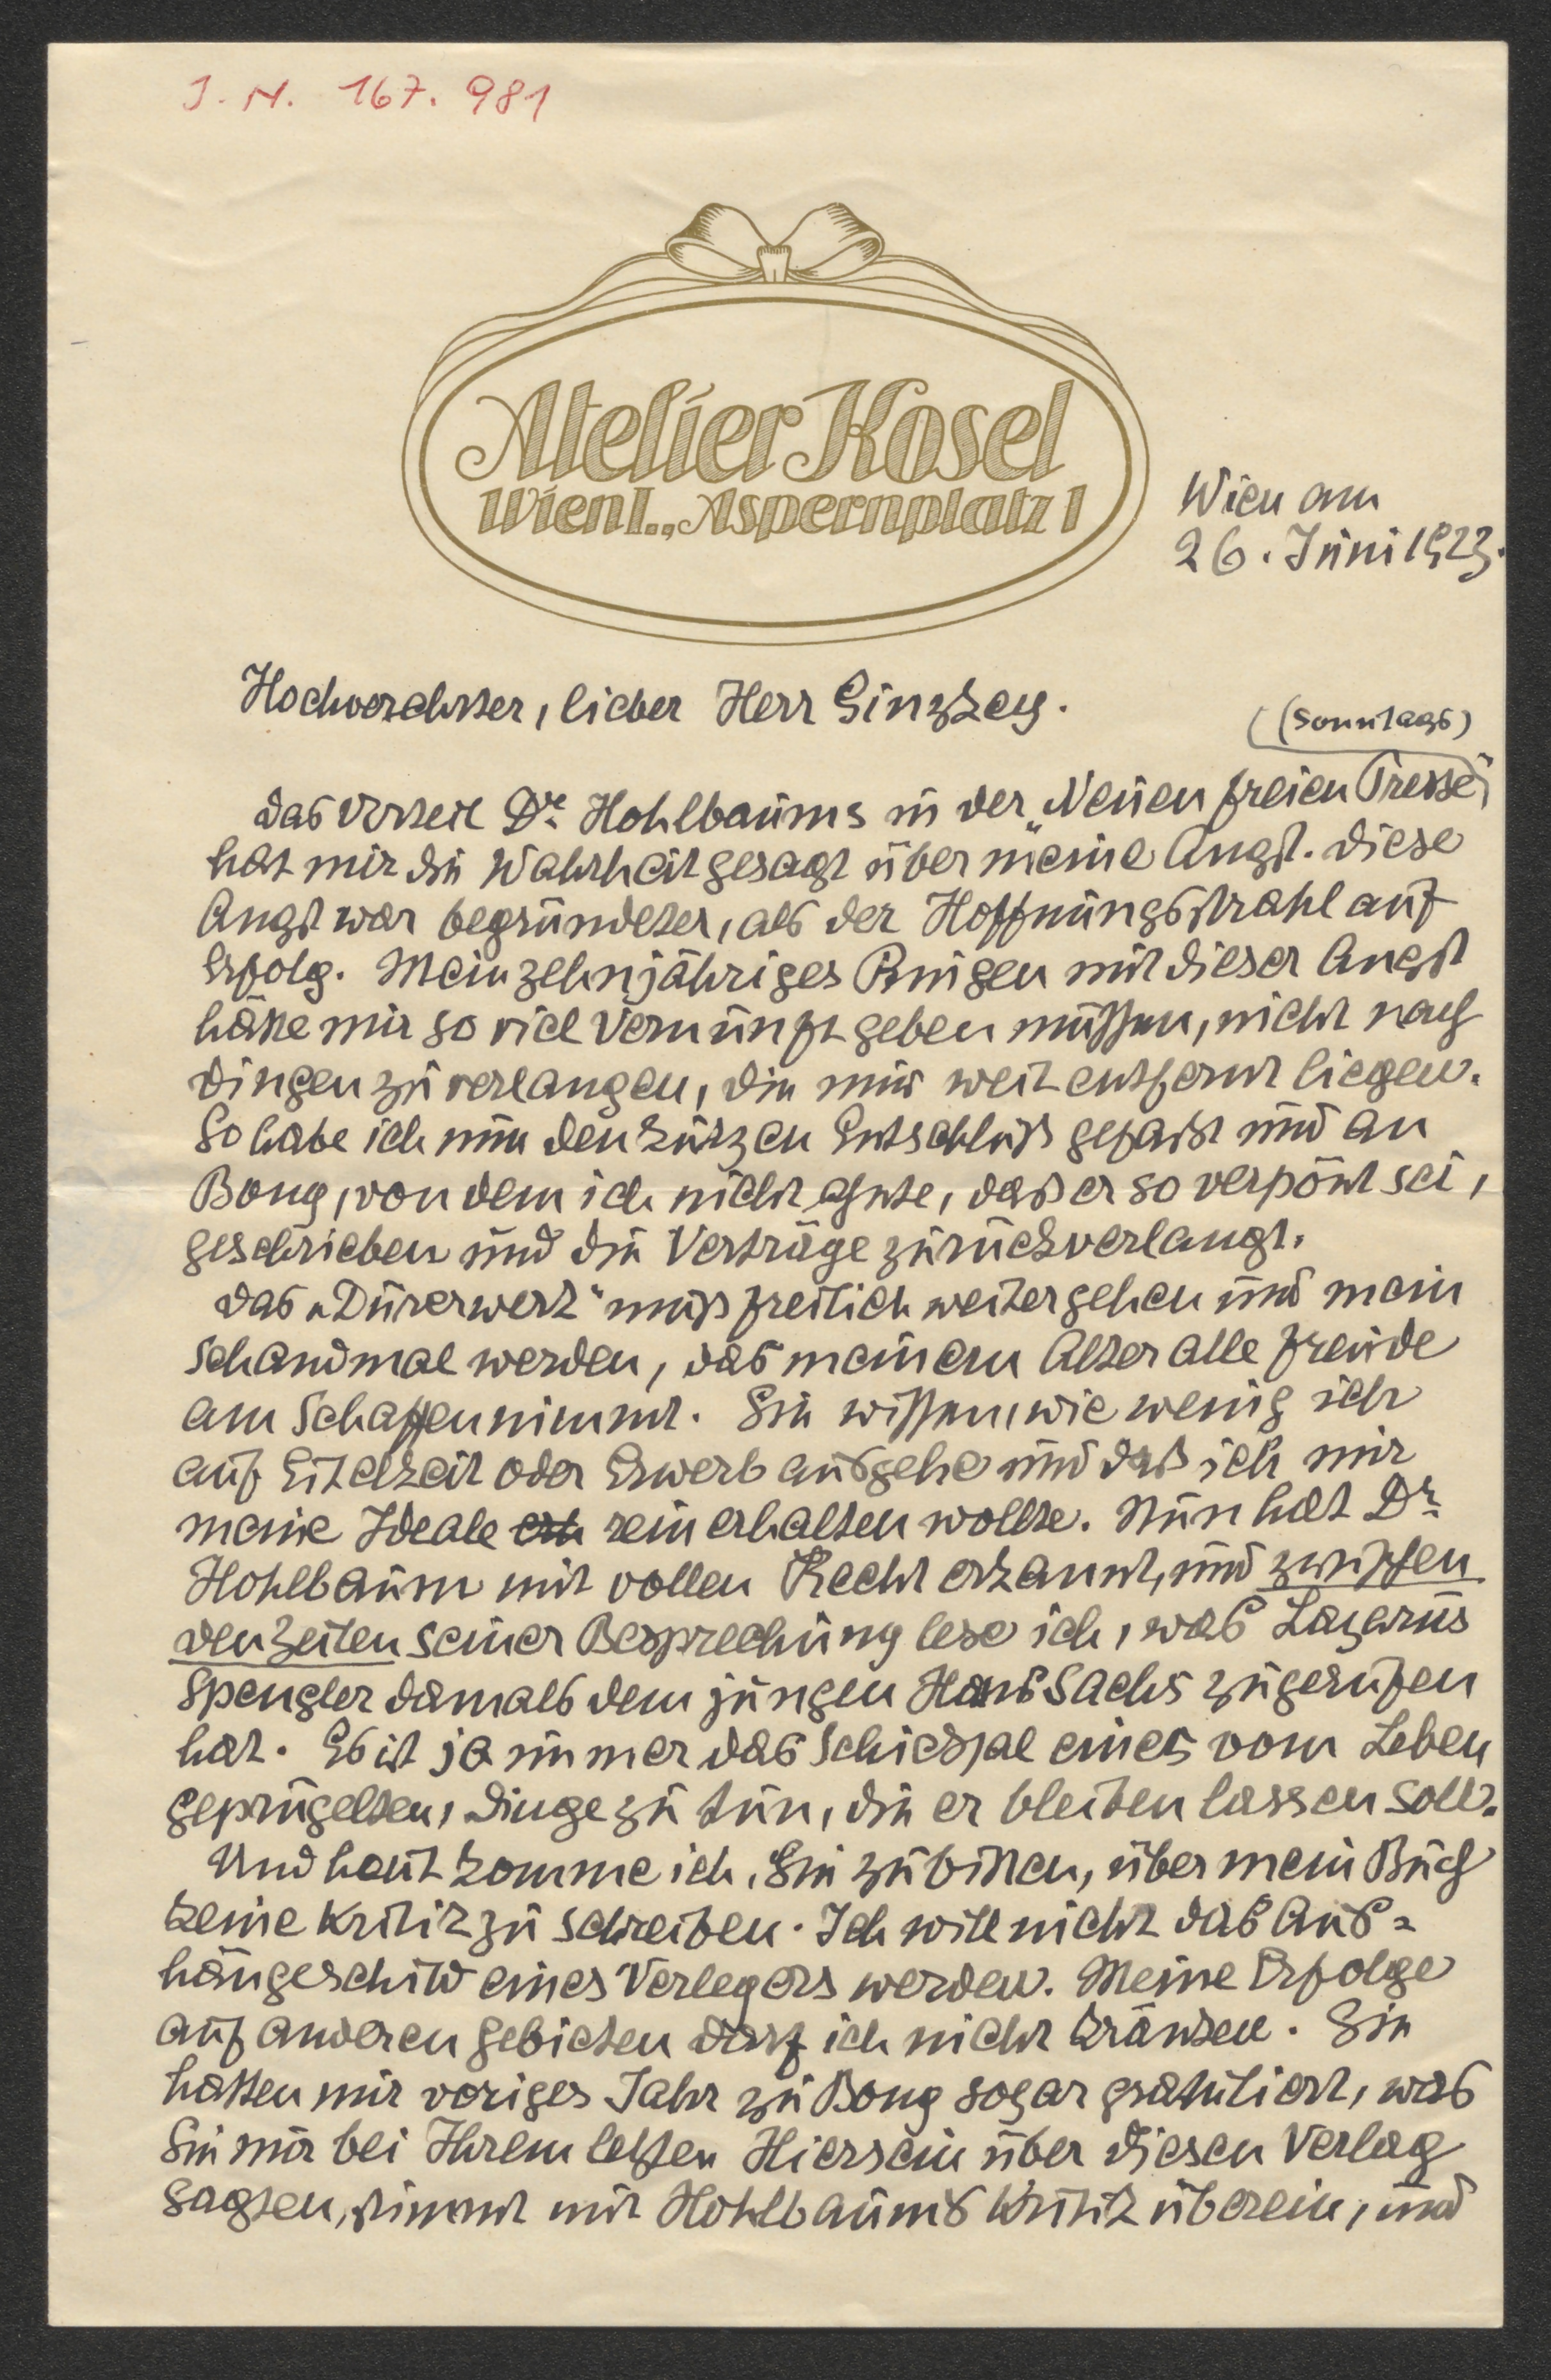 I. N. 167.981
Atelier Kosel
Wien I., Aspernplatz 1
Wien am
26. Juni 1923.
Hochverehrter, lieber Herr Ginzkey.
((Sonntags)
Das Urteil Dr. Hohlbaums in der „Neuen freien Presse“
hat mir die Wahrheit gesagt über meine Angst. Diese
Angst war begründeter, als der Hoffnungsstrahl auf
Erfolg. Mein zehnjähriges Ringen mit dieser Angst
hätte mir so viel Vernunft geben müssen, nicht nach
Dingen zu verlangen, die mir weit entfernt liegen.
So habe ich nun den kurzen Entschluß gefaßt und an
Bong, von dem ich nicht ahnte, daß er so verpönt sei,
geschrieben und die Verträge zurückverlangt.
Das „Dürerwerk“ muß freilich weitergehen und mein
Schandmal werden, das meinem Alter alle Freude
am Schaffen nimmt. Sie wissen, wie wenig ich
auf Eitelkeit oder Erwerb ausgehe und daß ich mir
meine Ideale erh rein erhalten wollte. Nun hat Dr.
Hohlbaum mit vollen Recht erkannt, und zwischen
den Zeilen seiner Besprechung lese ich, was Lazarus
Spengler damals dem jungen Hans Sachs zugerufen
hat. Es ist ja immer das Schicksal eines vom Leben
geprügelten, Dinge zu tun, die er bleiben lassen soll.
Und heut komme ich, Sie zu bitten, über mein Buch
keine Kritik zu schreiben. Ich will nicht das Aus=
hängeschild eines Verlegers werden. Meine Erfolge
auf anderen Gebieten darf ich nicht kränken. Sie
hatten mir voriges Jahr zu Bong sogar gratuliert, was
Sie mir bei Ihrem letzten Hiersein über diesen Verlag
sagten, stimmt mit Hohlbaums Kritik überein, und